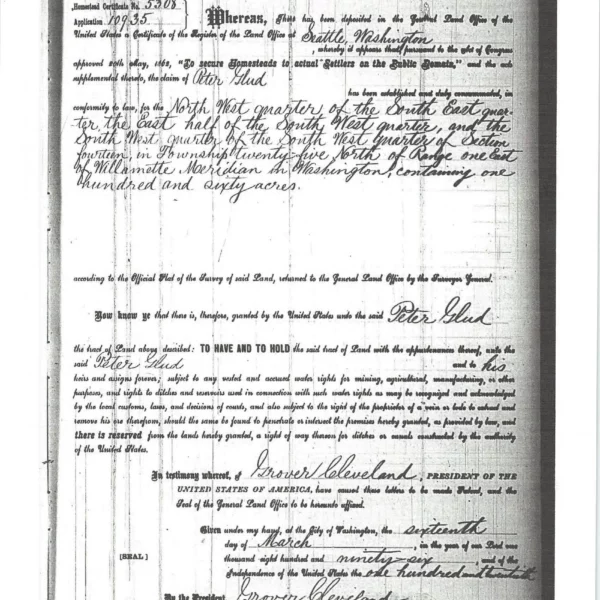 Homestead Certificate No. 5308
Application 10935
Whereas, There has been deposited in the General Land Office of the
United States a Certificate of the Register of the Land Office at Seattle, Washington
, whereby it appears that, pursuant to the Act of Congress
approved 20th May, 1862, "To secure Homesteads to actual Settlers on the Public Domain," and the acts
supplemental thereto, the claim of Peter Glud
has been established and duly consummated, in
conformity to law, for the North West quarter of the South East quar-
ter, the East half of the South West quarter, and the
South West quarter of the South West quarter of Section
fourteen, in Township twenty-five North of Range one East
of Willamette Meridian in Washington, containing one
hundred and sixty acres.
according to the Official Plat of the Survey of said Land, returned to the General Land Office by the Surveyor General.
Now know ye that there is, therefore, granted by the United States unto the said Peter Glud
the tract of Land above described: TO HAVE AND TO HOLD the said tract of Land with the appurtenances thereof, unto the
said Peter Glud and to his
heirs and assigns forever; subject to any vested and accrued water rights for mining, agricultural, manufacturing, or other
purposes, and rights to ditches and reservoirs used in connection with such water rights as may be recognized and acknowledged
by the local customs, laws, and decisions of courts, and also subject to the right of the proprietor of a vein or lode to extract and
remove his ore therefrom, should the same be found to penetrate or intersect the premises hereby granted, as provided by law, and
there is reserved from the lands hereby granted, a right of way thereon for ditches or canals constructed by the authority
of the United States.
In testimony whereof, I, Grover Cleveland, PRESIDENT OF THE
UNITED STATES OF AMERICA, have caused these letters to be made Patent, and the
Seal of the General Land Office to be hereunto affixed.
Given under my hand, at the City of Washington, the sixteenth
day of March, in the year of our Lord one
[SEAL] thousand eight hundred and ninety-six, and of the
Independence of the United States the one hundred and twentieth
By the President Grover Cleveland